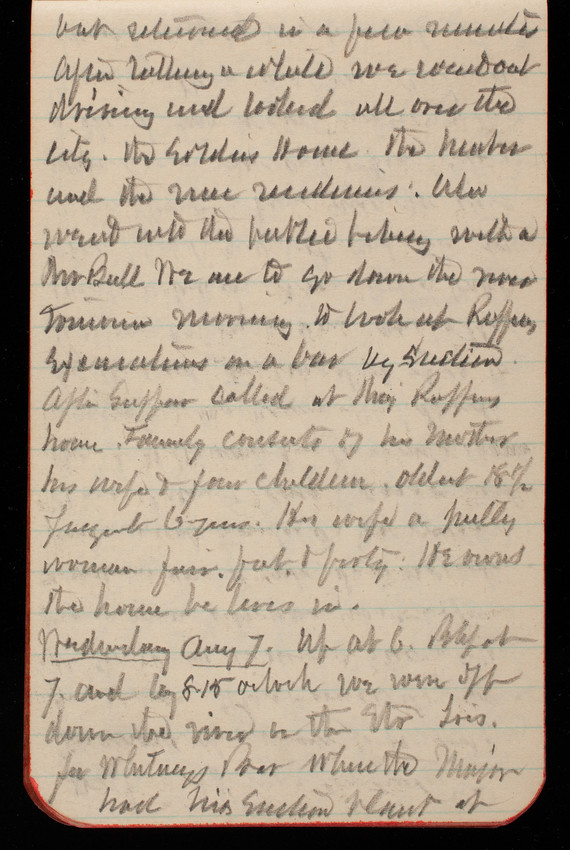 but returned in a few minutes
After talking a while we went out
driving and looked all over the
city. the Soldiers Home the
and the nice residences. Also
went into the public with a
Mr Bull We are to go down the river
Tomorrow morning to look at Ruffins
Excavations on a bar by Suction
After Supper called at Maj Ruffins
home. Family consists of his Mother
his wife & four children. oldest 18½
6 yrs. His wife a pretty
woman fair, fat, & forty. He owns
the home he lives in.
Wednesday Aug 7. Up at 6. Bkfst
7. and by 8.15 oclock we were off
down the river on the Str Lois.
for Whitneys Bar where the Major
had his Suction Plant at